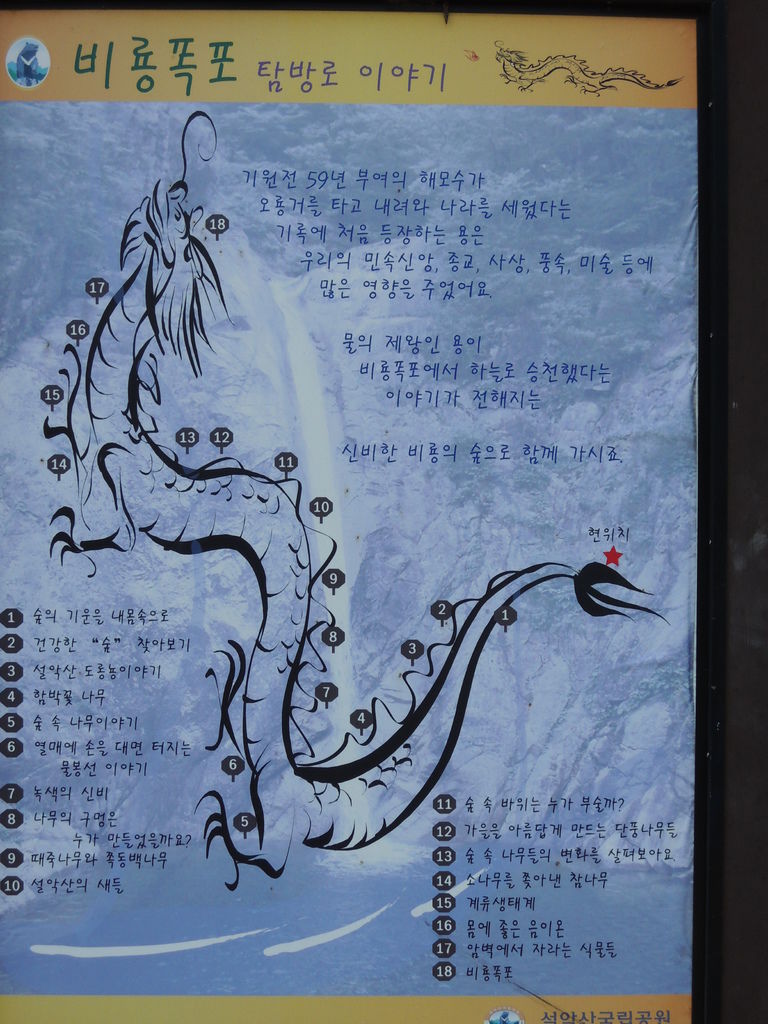 비룡폭포 탐방로 이야기
기원전 59년 부여의 해모수가
오룡거를 타고 내려와 나라를 세웠다는
기록에 처음 등장하는 용은
우리의 민속신앙, 종교, 사상, 풍속, 미술 등에
많은 영향을 주었어요.
물의 제왕인 용이
비룡폭포에서 하늘로 승천했다는
이야기가 전해지는
신비한 비룡의 숲으로 함께 가시죠.
현위치
18
17
16
15
14
13
12
11
10
9
8
7
6
5
4
3
2
1
1 숲의 기운을 내몸속으로
2 건강한 "숲" 찾아보기
3 설악산 도롱뇽이야기
4 함박꽃 나무
5 숲 속 나무이야기
6 열매에 손을 대면 터지는
물봉선 이야기
7 녹색의 신비
8 나무의 구멍은
누가 만들었을까요?
9 때죽나무와 쪽동백나무
10 설악산의 새들
11 숲 속 바위는 누가 부술까?
12 가을을 아름답게 만드는 단풍나무들
13 숲 속 나무들의 변화를 살펴보아요.
14 소나무를 쫓아낸 참나무
15 계류생태계
16 몸에 좋은 음이온
17 암벽에서 자라는 식물들
18 비룡폭포
설악산국립공원